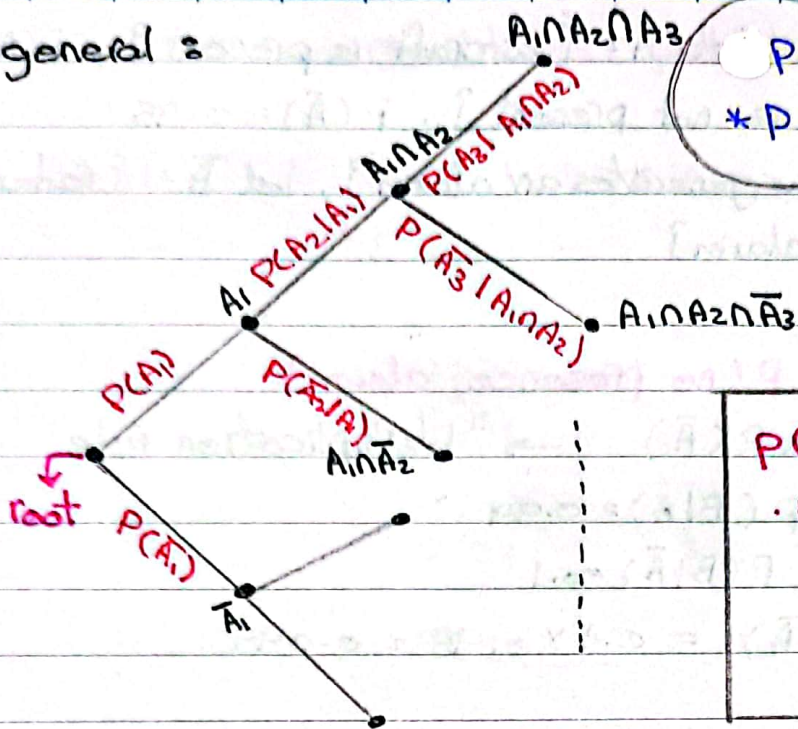 general :
A₁∩A₂∩A₃
P
* P
A₁∩A₂
P(A₃|A₁∩A₂)
P(A₂|A₁)
P(A̅₃|A₁∩A₂)
A₁
A₁∩A₂∩A̅₃
P(A₁)
P(A̅₂|A₁)
P(
A₁∩A̅₂
root
P(A̅₁)
A̅₁